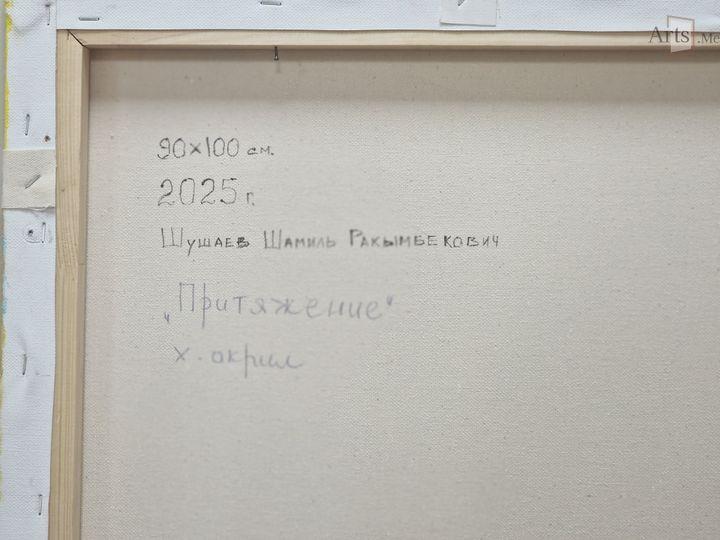 Arts.Me
90×100 см.
2025 г.
Шушаев Шамиль Ракымбекович
„Притяжение“
х. акрил